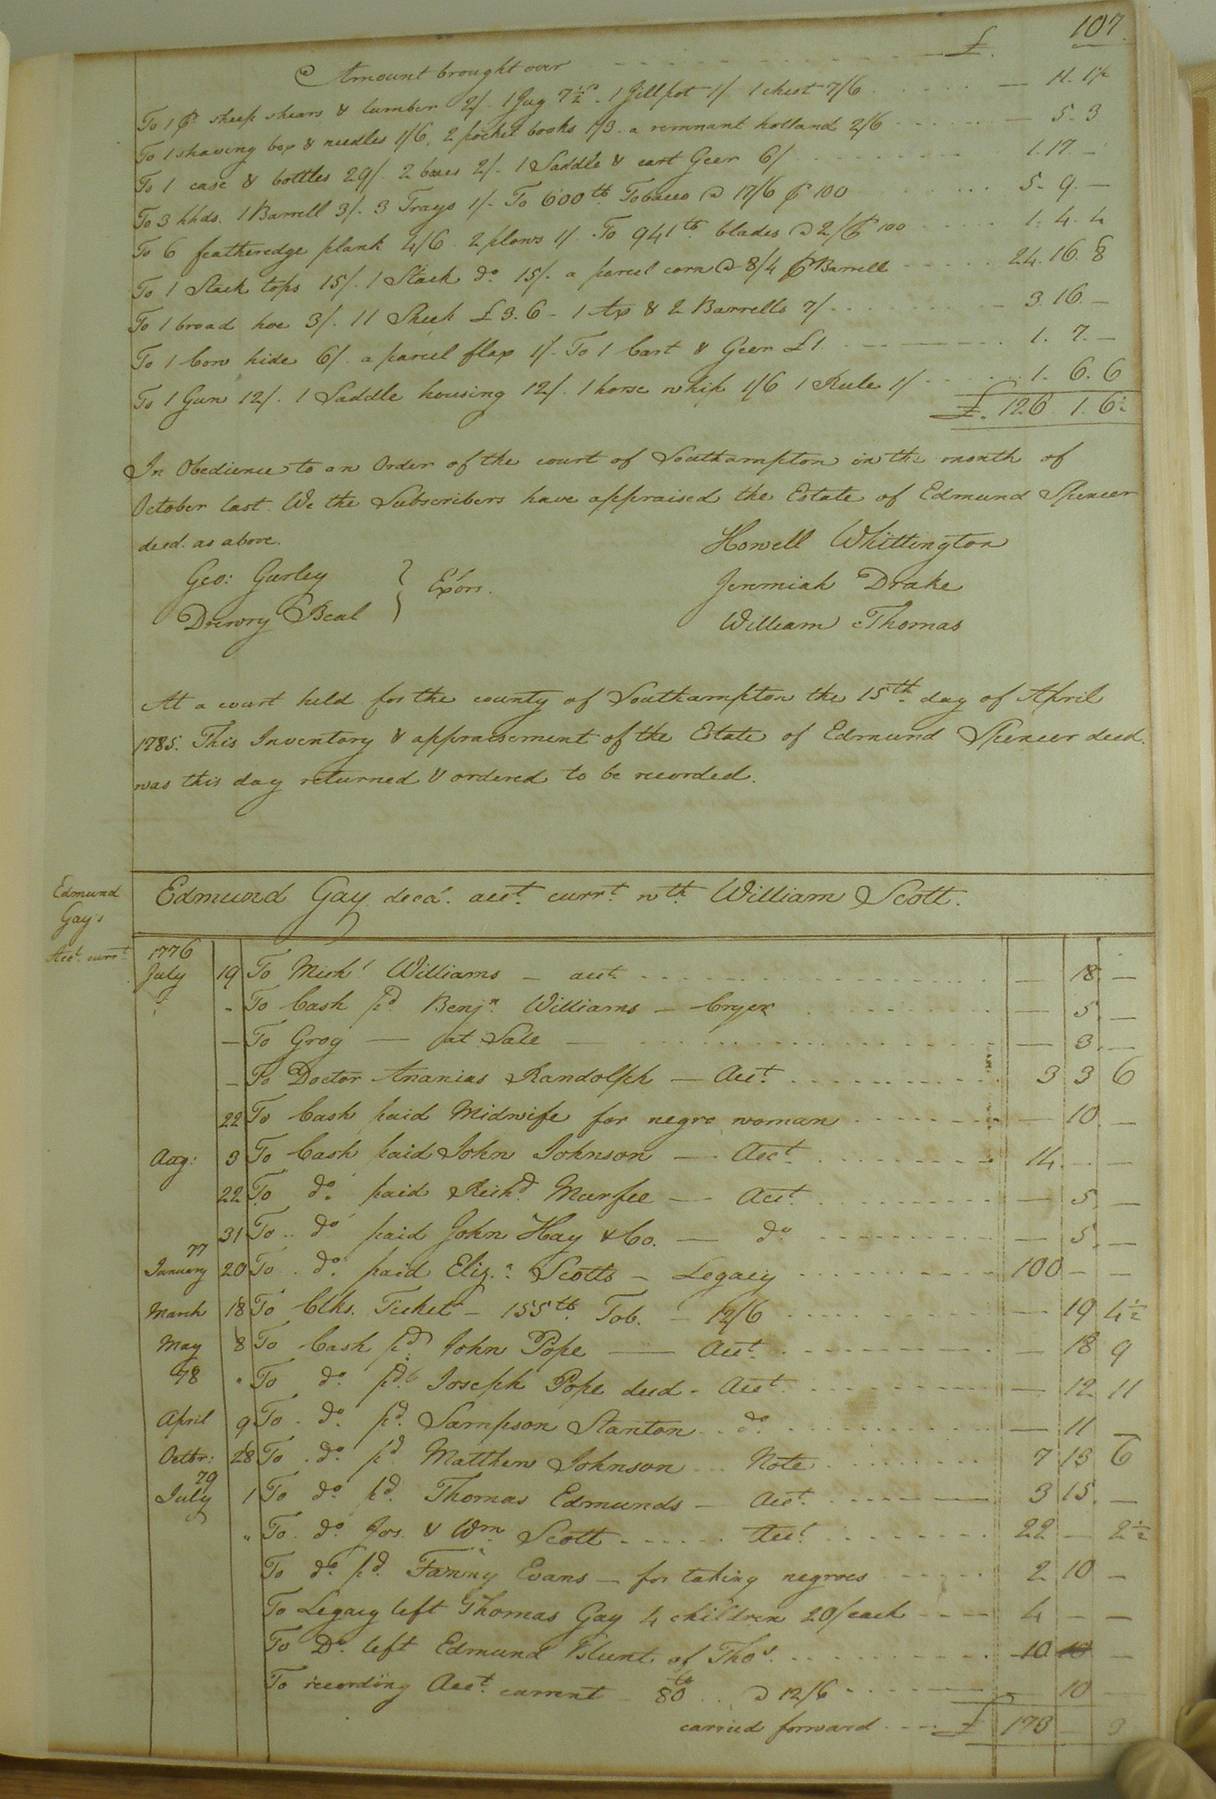 107
Amount brought over £.
To 1 pr sheep shears & lumber 2/. 1 Jug 7½d. 1 Jillpot 1/. 1 chest 7/6 — 11. 1½
To 1 shaving box & needles 1/6. 2 pocket books 1/3. a remnant holland 2/6 — 5. 3
To 1 case & bottles 29/. 2 boxes 2/. 1 Saddle & cart Geer 6/ 1. 17. —
To 3 hhds. 1 Barrell 3/. 3 Trays 1/. To 600 lb Tobacco @ 17/6 pr 100 5. 9. —
To 6 featheredge plank 4/6. 2 plows 1/. To 941 lb blades @ 2/6 pr 100 1. 4. 4
To 1 Stack tops 15/. 1 Stack do. 15/. a parcel corn @ 8/4 pr Barrell 24. 16. 8
To 1 broad hoe 3/. 11 Sheep £3. 6 - 1 Ax & 2 Barrells 7/ 3. 16. —
To 1 Cow hide 6/. a parcel flax 1/. To 1 Cart & Geer £1. 1. 7. —
To 1 Gun 12/. 1 Saddle housing 12/. 1 horse whip 1/6 1 Rule 1/ 1. 6. 6
£. 126. 1. 6½
In Obedience to an Order of the court of Southampton in the month of
October last. We the Subscribers have appraised the Estate of Edmund Spencer
decd. as above.
Howell Whittington
Geo: Gurley } Exors.
Jeremiah Drake
Drewry Beal
William Thomas
At a court held for the county of Southampton the 15th. day of April
1785. This Inventory & appraisement of the Estate of Edmund Spencer decd.
was this day returned & ordered to be recorded.
Edmund
Gay's
Acct. currt.
Edmund Gay decd. acct. currt. wth. William Scott.
1776
July 19 To Mich'l Williams — acct — 18. —
- To Cash pd Benjn. Williams — Cryer — 5. —
— To Grog — at Sale — — 3. —
— To Doctor Ananias Randolph — Acct. 3 3 6
22 To Cash paid Midwife for negro woman — 10. —
Aug: 3 To Cash paid John Johnson — Acct. 14 — —
22 To do. paid Richd Murfee — Acct. — 5. —
31 To do paid John Hay & Co. — do — 5. —
77
January 20 To do. paid Eliza. Scotts — Legacy 100 — —
March 18 To Clks. Ticket — 155 lb. Tob. — 12/6 — 19 4½
May 8 To Cash pd. John Pope — Acct. — 18 9
78 " To do. pd. Joseph Pope decd — Acct. — 12 11
April 9 To do. pd. Sampson Stanton do. — 11 —
Octbr: 28 To do. pd. Matthew Johnson Note 7 13 6
79
July 1 To do. pd. Thomas Edmunds — Acct. 3 15 —
" To do. Jos. & Wm. Scott Acct. 22 — 2½
To do. pd. Fanny Evans — for taking negroes 2 10 —
To Legacy left Thomas Gay 4 children 20/ each 4 — —
To Do. left Edmund Blunt of Thos. 10 10 —
To recording Acct. current 80 lb @ 12/6 10
carried forward £ 173 — 3